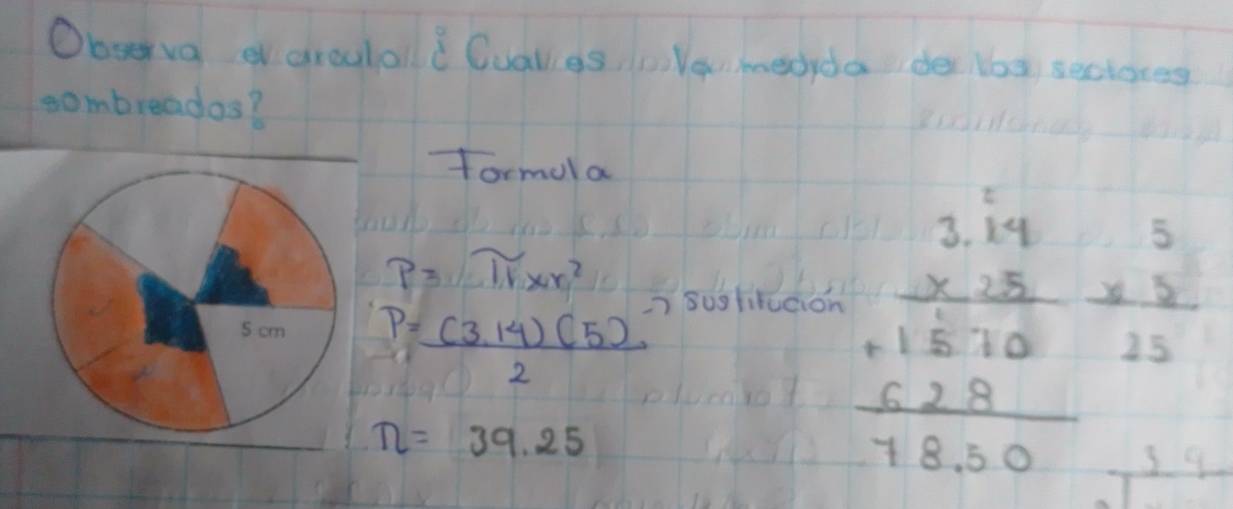 Observa el circulo ¿Cual es la medida de los sectores
sombreados?
Formula
P= π x r²
P= (3.14)(5)
2
→ sustitución
n= 39.25
5 cm
3.14
x 25
+1570
628
78.50
5
x 5
25